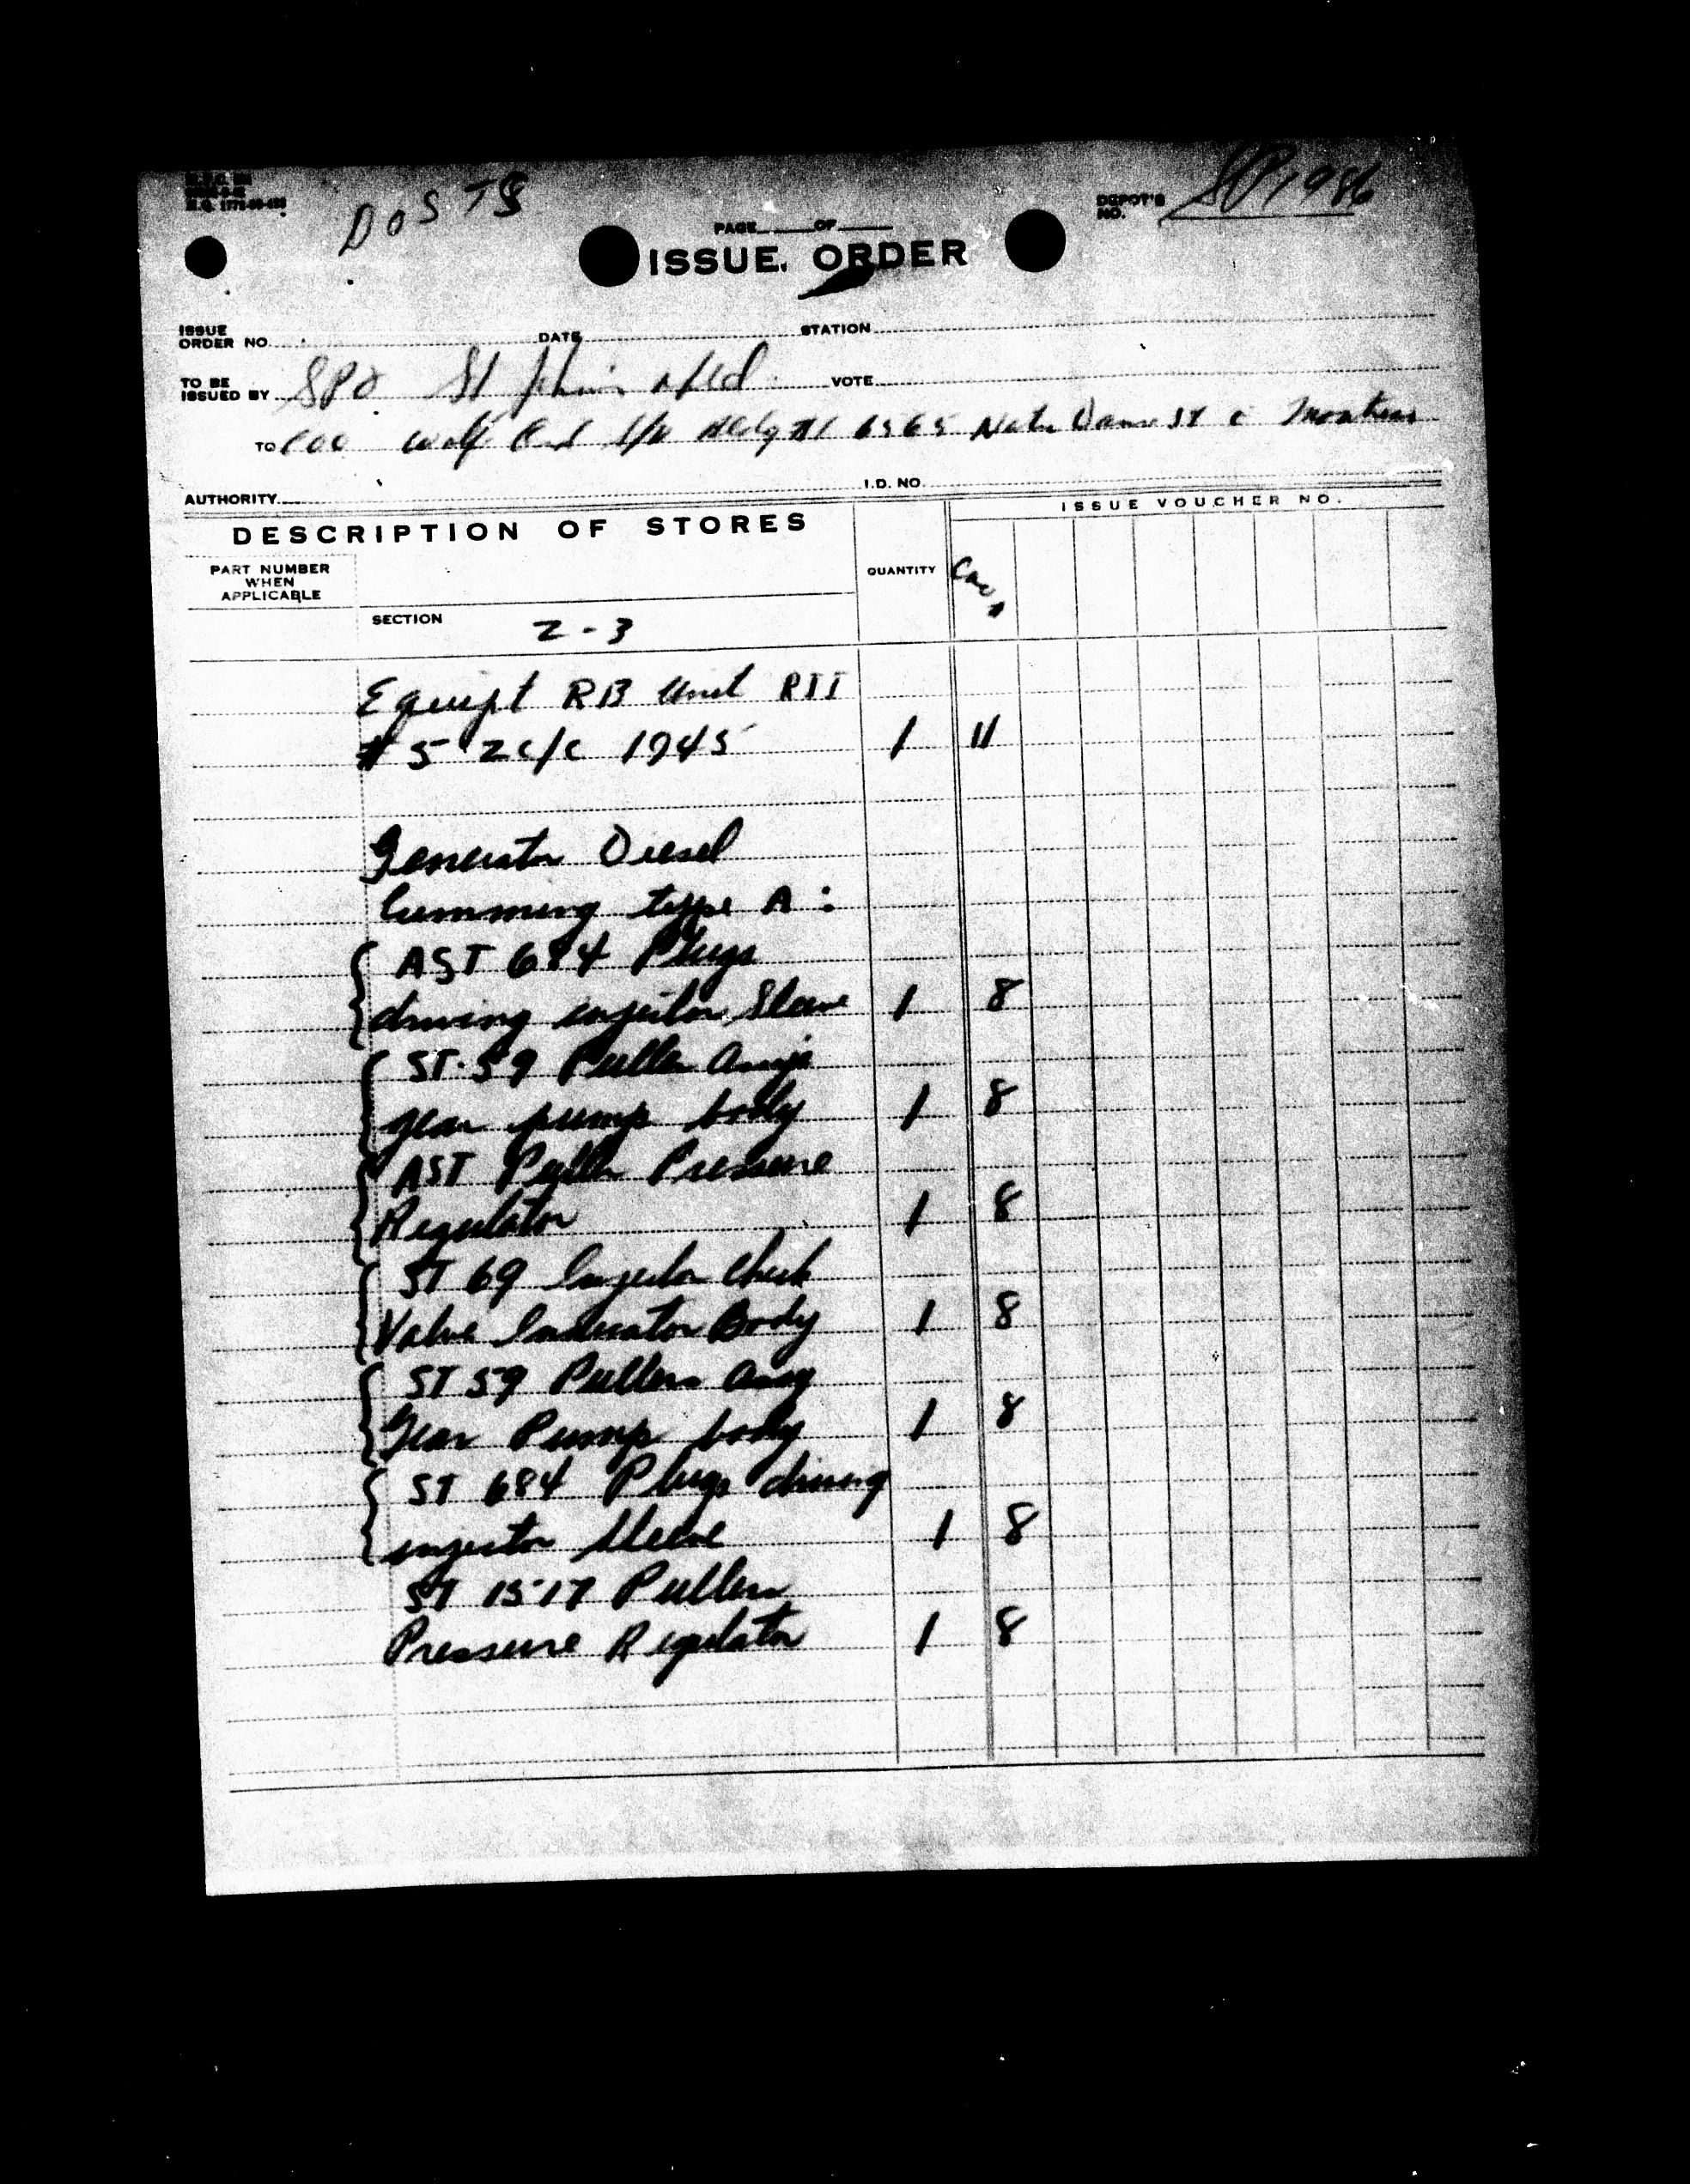 H.Q. 1772-
DOSTS
DEPOT'S NO. SP1986
PAGE OF
ISSUE ORDER
ISSUE ORDER NO. DATE STATION
TO BE ISSUED BY SPO St John's Nfld VOTE
TO Bldg #1 6565 Notre Dame St E Montreal
AUTHORITY I.D. NO.
DESCRIPTION OF STORES
ISSUE VOUCHER NO.
PART NUMBER WHEN APPLICABLE
QUANTITY
SECTION 2-3
Equipt RB Unit RII
#5 2c/c 1945 1 11
Generator Diesel
Cumming type A :
AST 684 Plugs
driving injector Sleeve 1 8
ST-59 Puller
gear pump body 1 8
AST Puller Pressure
Regulator 1 8
ST 69 Injector Check
Valve Indicator Body 1 8
ST 59 Pullers Assy
Gear Pump body 1 8
ST 684 Plugs driving
injector sleeve 1 8
ST 1517 Pullers
Pressure Regulator 1 8